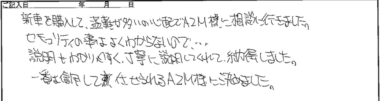 ご記入日 年 月 日
新車を購入して、盗難が多いの心配でA2M様に相談に行きました。
セキュリティの事はよくわからないので…
説明もわかりやすく、丁寧に説明してくれて、納得しました。
一番信用して任せられるA2M様に決めました。